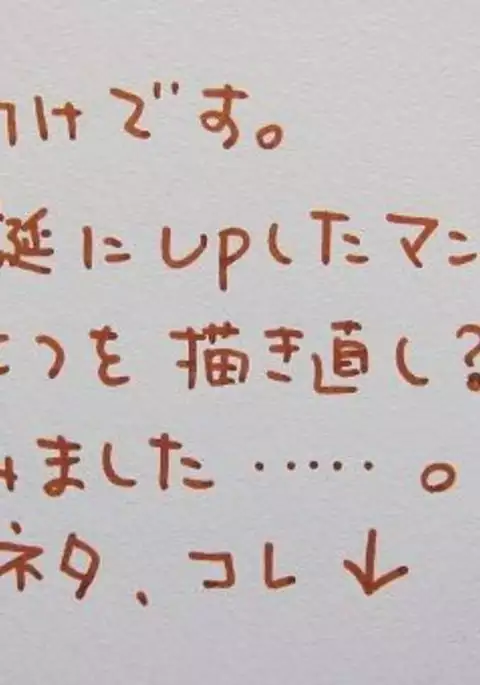 けです。
誕にupしたマン
つを描き直し?
みました……。
ネタ、コレ↓